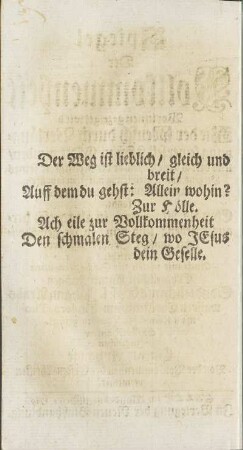 Der Weg ist lieblich/ gleich und
breit/
Auff dem du gehst: Allein wohin?
Zur Hölle.
Ach eile zur Vollkommenheit
Den schmalen Steg/ wo JEsus
dein Geselle.